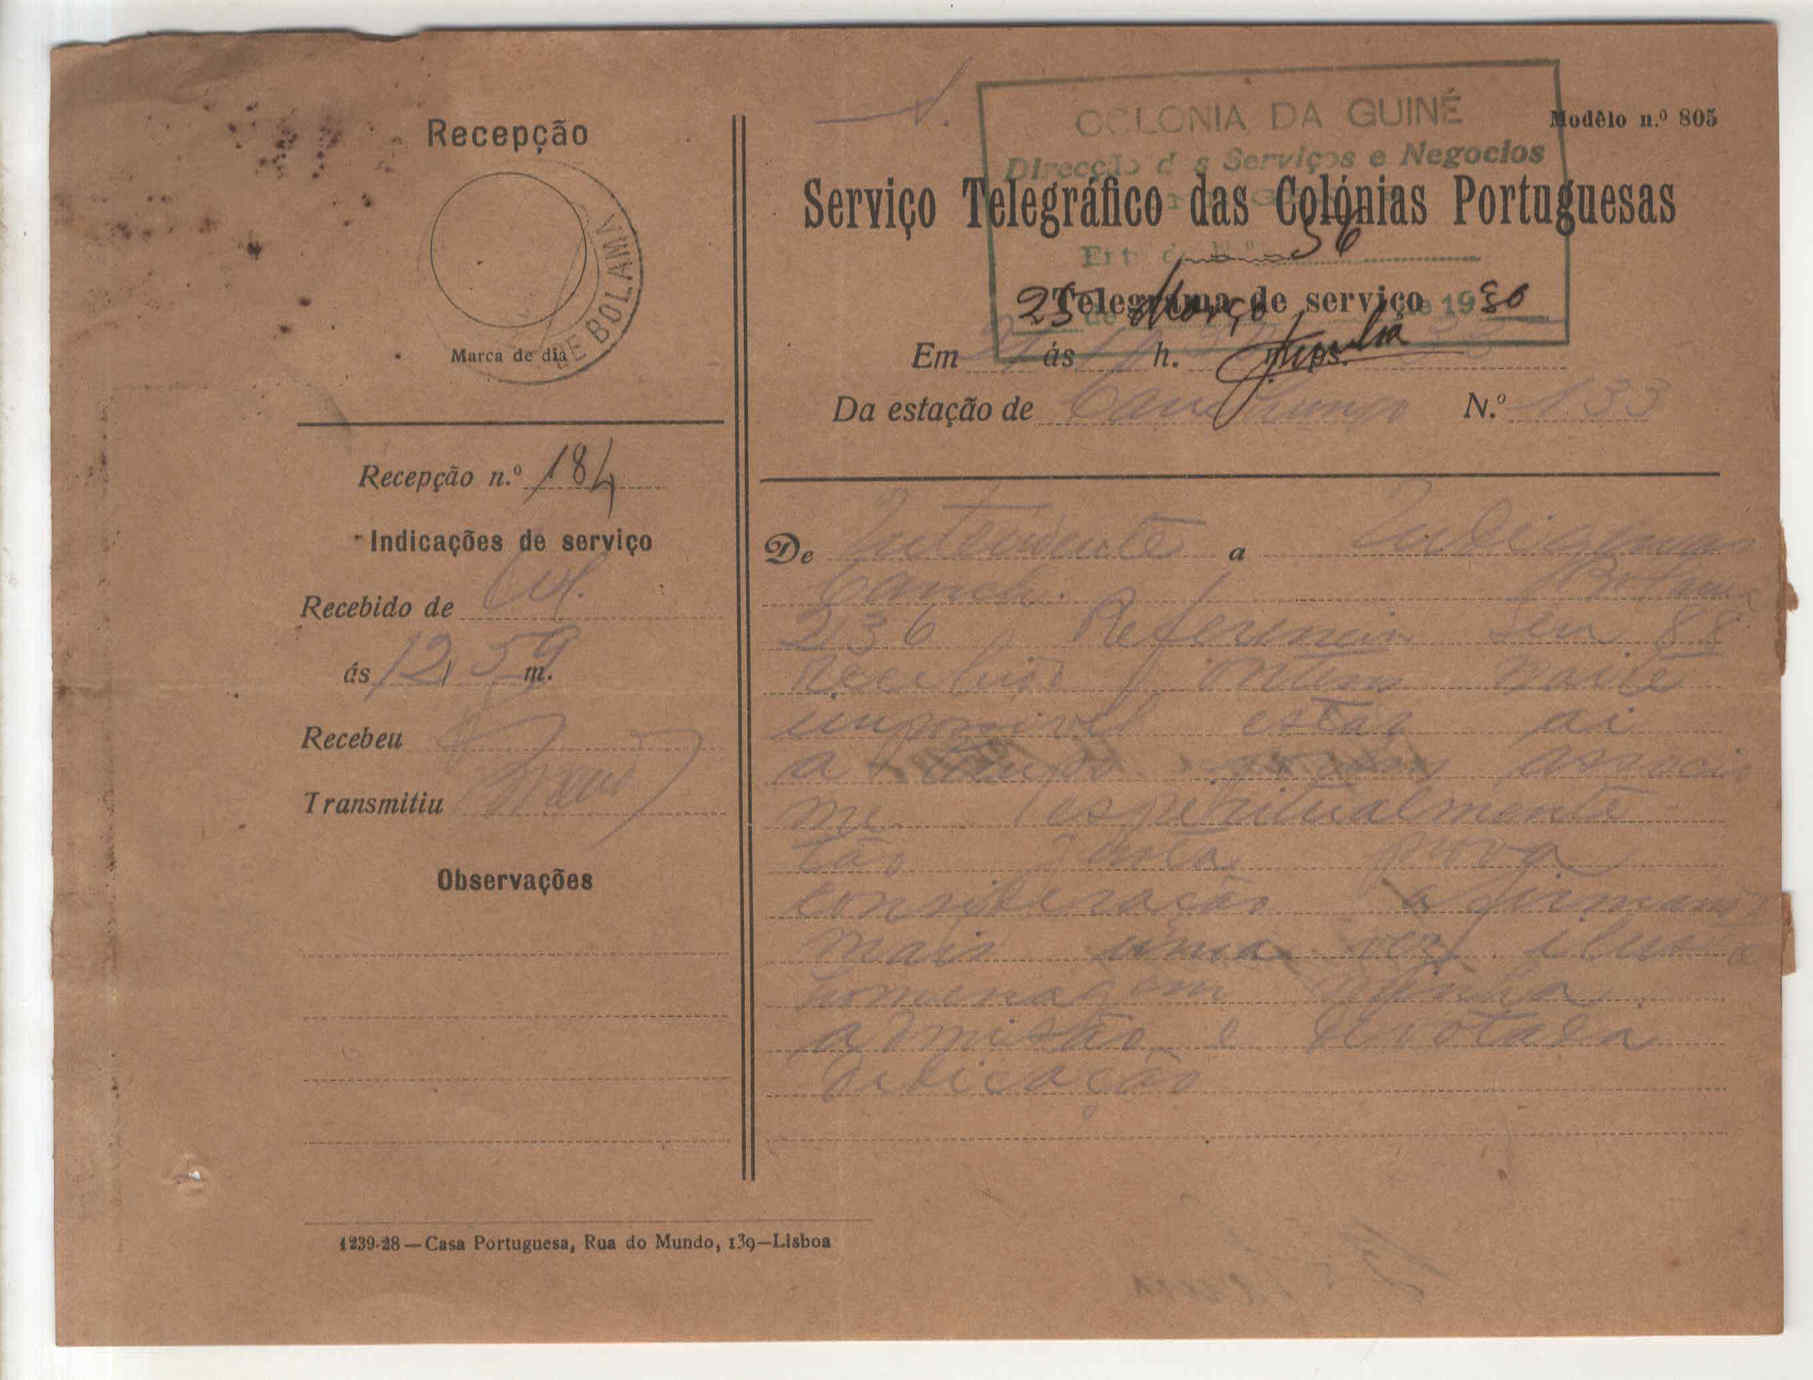 Recepção
DE BOLAMA
Marca de dia
Recepção n.º 184
Indicações de serviço
Recebido de
ás 12, 59 m.
Recebeu
Transmitiu
Observações
1239-28—Casa Portuguesa, Rua do Mundo, 139—Lisboa
COLONIA DA GUINÉ
Modêlo n.º 805
Direcção d s Serviços e Negocios
Serviço Telegráfico das Colónias Portuguesas
36
Telegrama de serviço
25 de Março de 1930
Em ás h.
Da estação de Canchungo N.º 133
De Intendente a Indigenas
Canch. Bolama
236 Referencia seu 88
recebido ontem noite
impossivel estar ai
a tempo associo
me espiritualmente
tão justa prova
consideração afirmando
mais uma vez
homenagem minha
admissão e devotada
dedicação